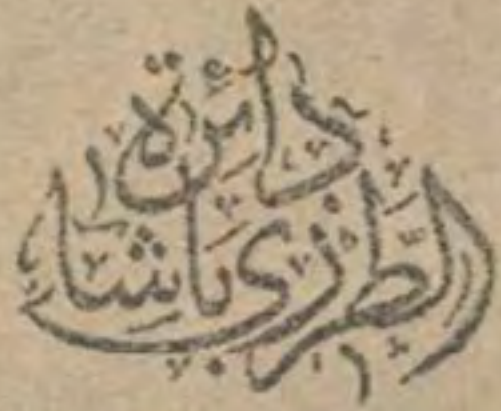 دائرة
الطرزي باشا